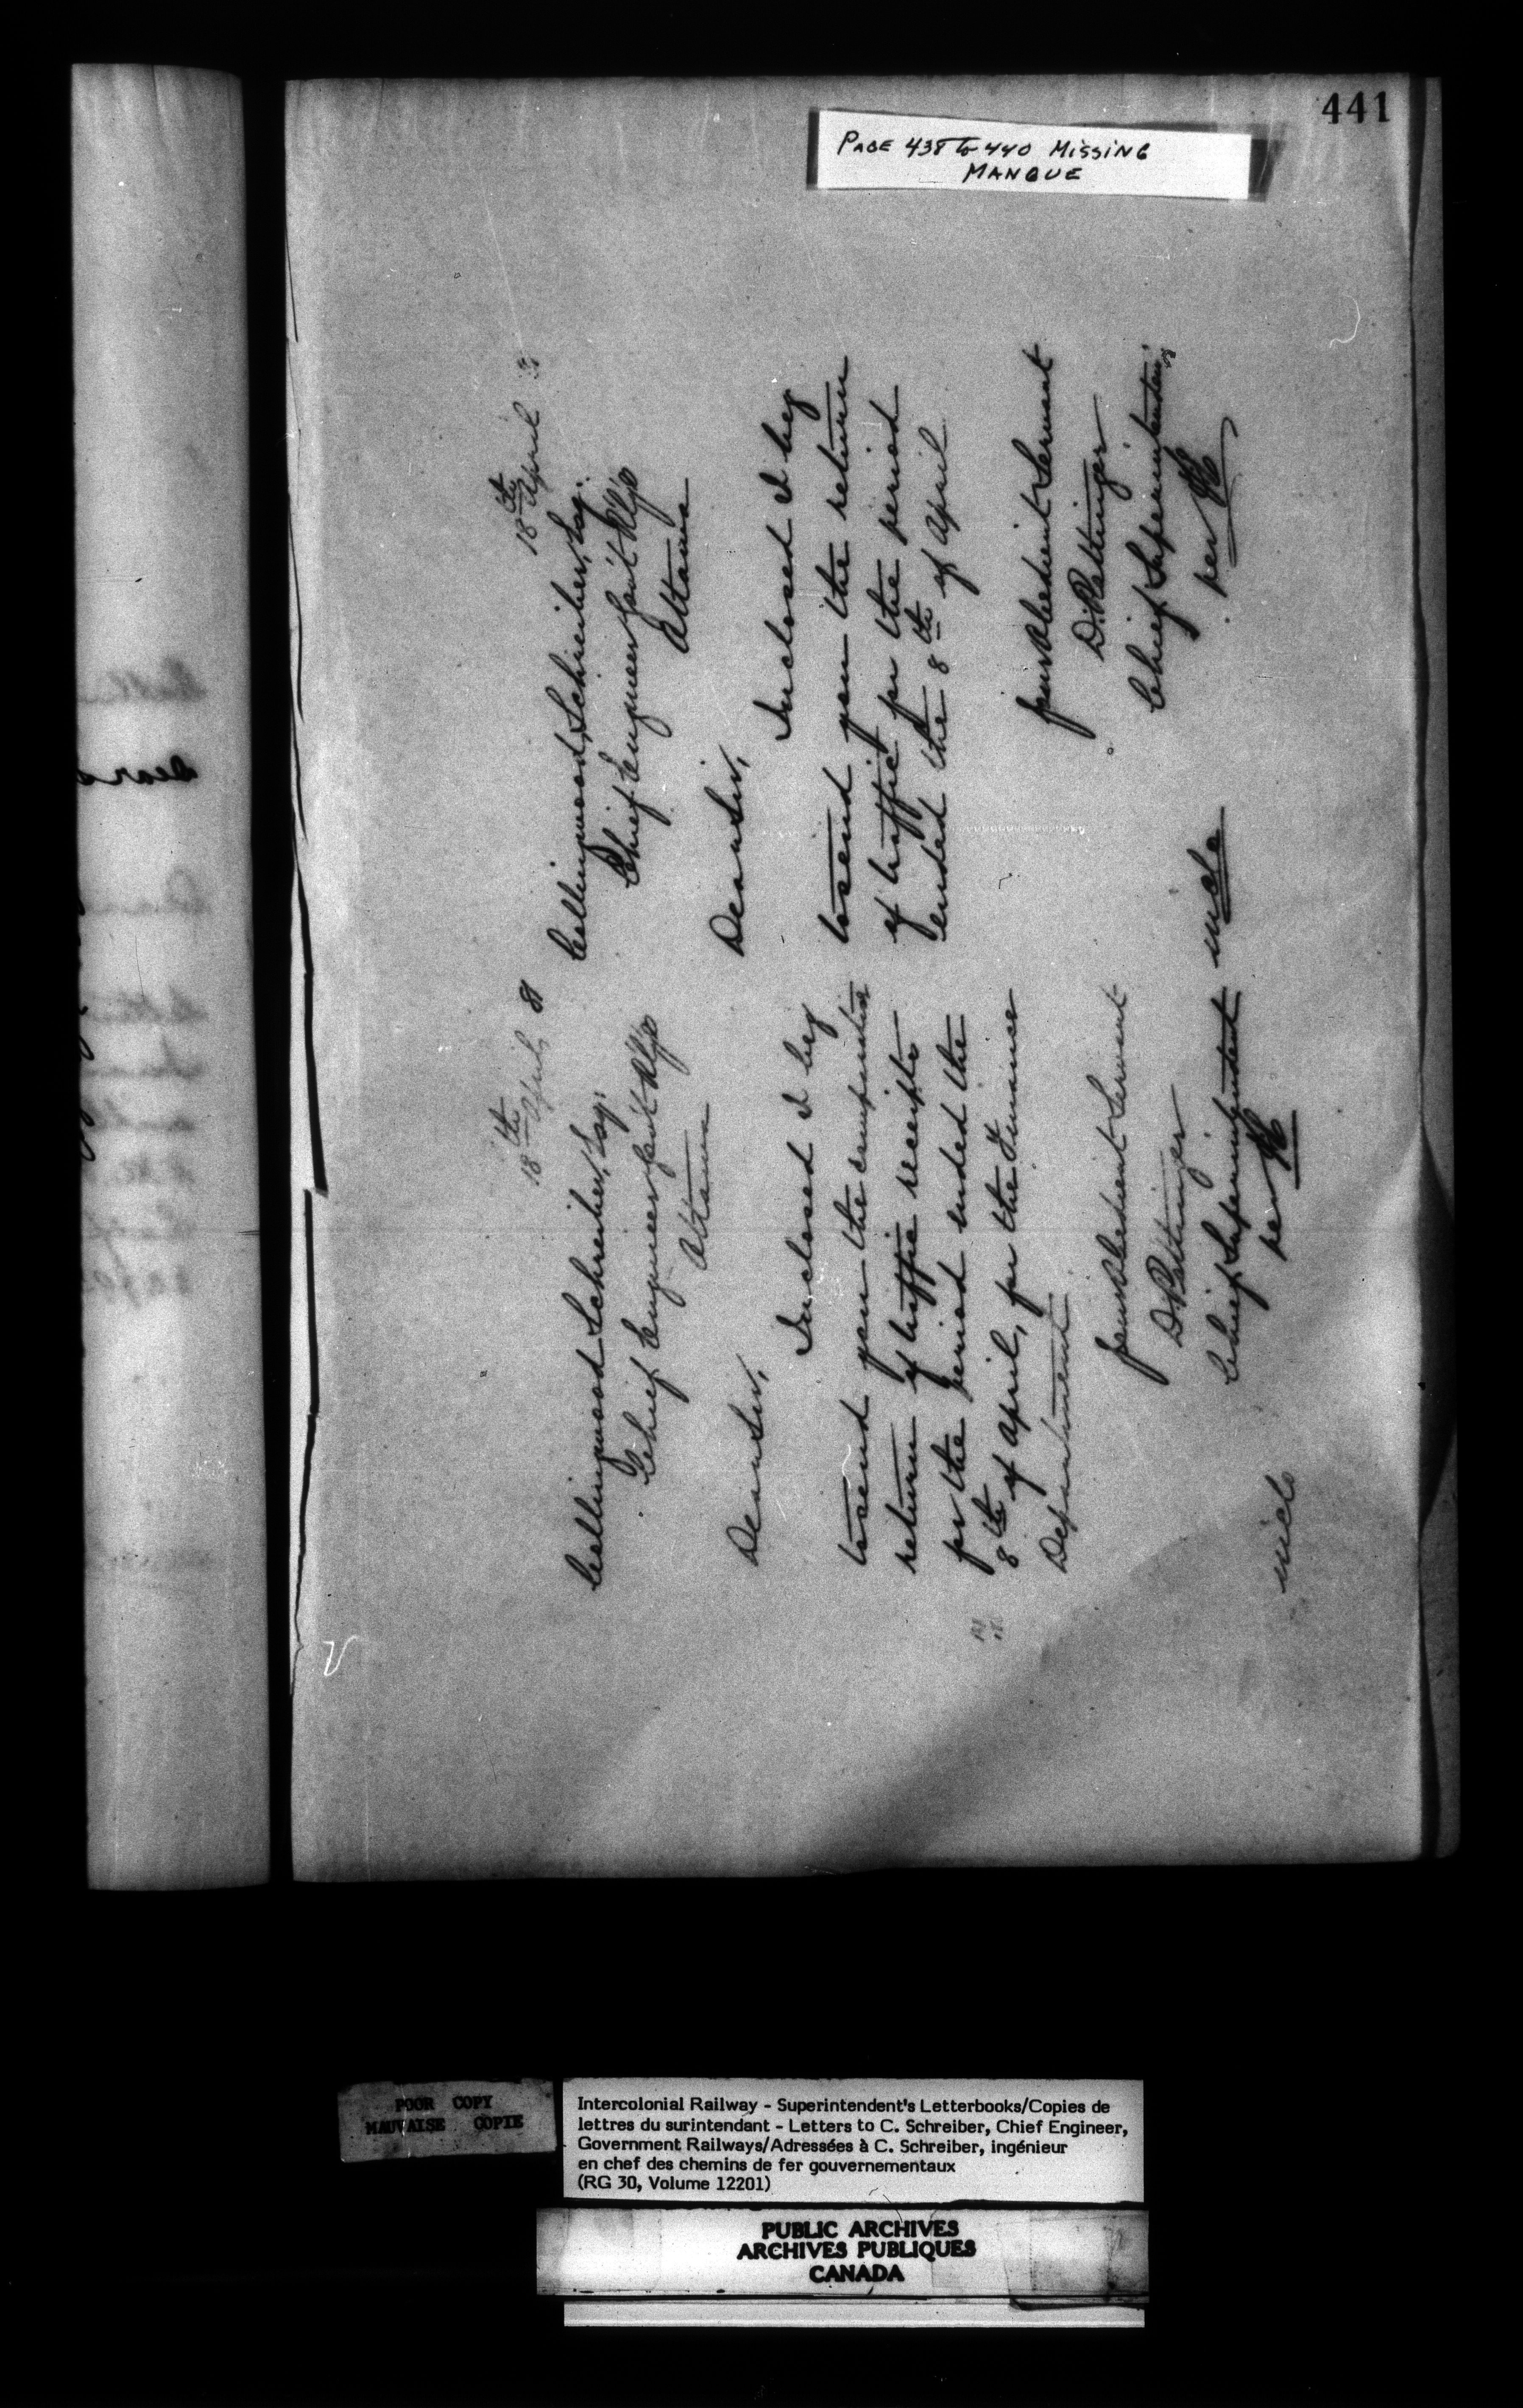 441
PAGE 438 to 440 MISSING
MANQUE
18th April 81
Collingwood Schreiber, Esq.
Chief Engineer Gov't Rlys
Ottawa
Dear Sir,
Inclosed I beg
to send you the comparative
return of traffic receipts
for the period ended the
8th of April, for the Finance
Department
Your Obedient Servant
D. Pottinger
Chief Superintendent
per
incls
18th April
Collingwood Schreiber, Esq.
Chief Engineer Gov't Rlys
Ottawa
Dear Sir,
Inclosed I beg
to send you the return
of traffic for the period
ended the 8th of April
Your Obedient Servant
D. Pottinger
Chief Superintendent
per
incls
POOR COPY
MAUVAISE COPIE
Intercolonial Railway - Superintendent's Letterbooks/Copies de
lettres du surintendant - Letters to C. Schreiber, Chief Engineer,
Government Railways/Adressées à C. Schreiber, ingénieur
en chef des chemins de fer gouvernementaux
(RG 30, Volume 12201)
PUBLIC ARCHIVES
ARCHIVES PUBLIQUES
CANADA